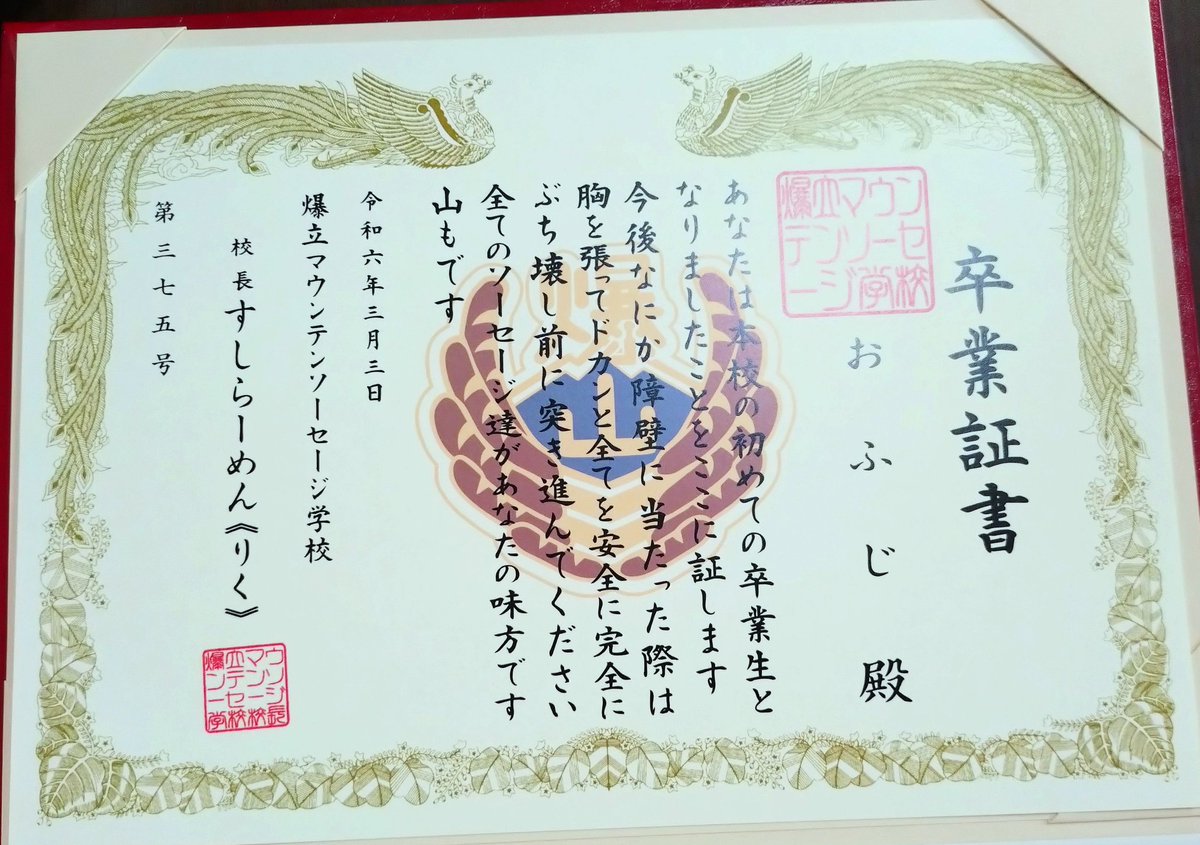 卒業証書
おふじ殿
あなたは本校の初めての卒業生と
なりましたことをここに証します
今後なにか障壁に当たった際は
胸を張ってドカンと全てを安全に完全に
ぶち壊し前に突き進んでください
全てのソーセージ達があなたの味方です
山もです
令和六年三月三日
爆立マウンテンソーセージ学校
校長 すしらーめん《りく》
第三七五号
爆立マウン
テンソーセ
ージ学校
爆
山